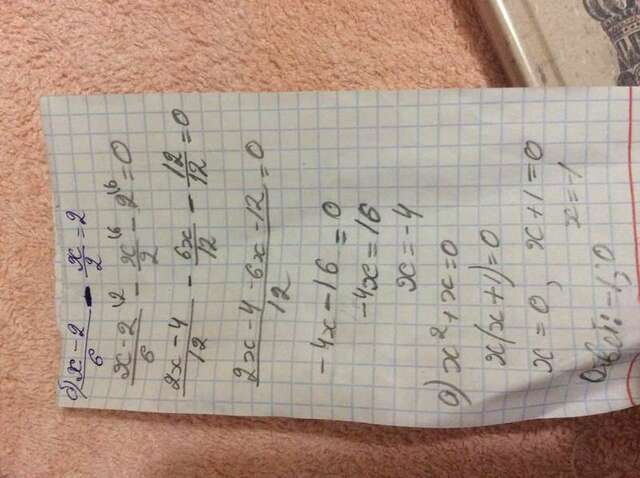 б) x-2/6 - x/2 = 2
x-2/6 \2 - x/2 \6 - 2 \6 = 0
2x-4/12 - 6x/12 - 12/12 = 0
2x-4-6x-12/12 = 0
-4x-16=0
-4x=16
x=-4
а) x²+x=0
x(x+1)=0
x=0, x+1=0
x=-1
Ответ: -1; 0